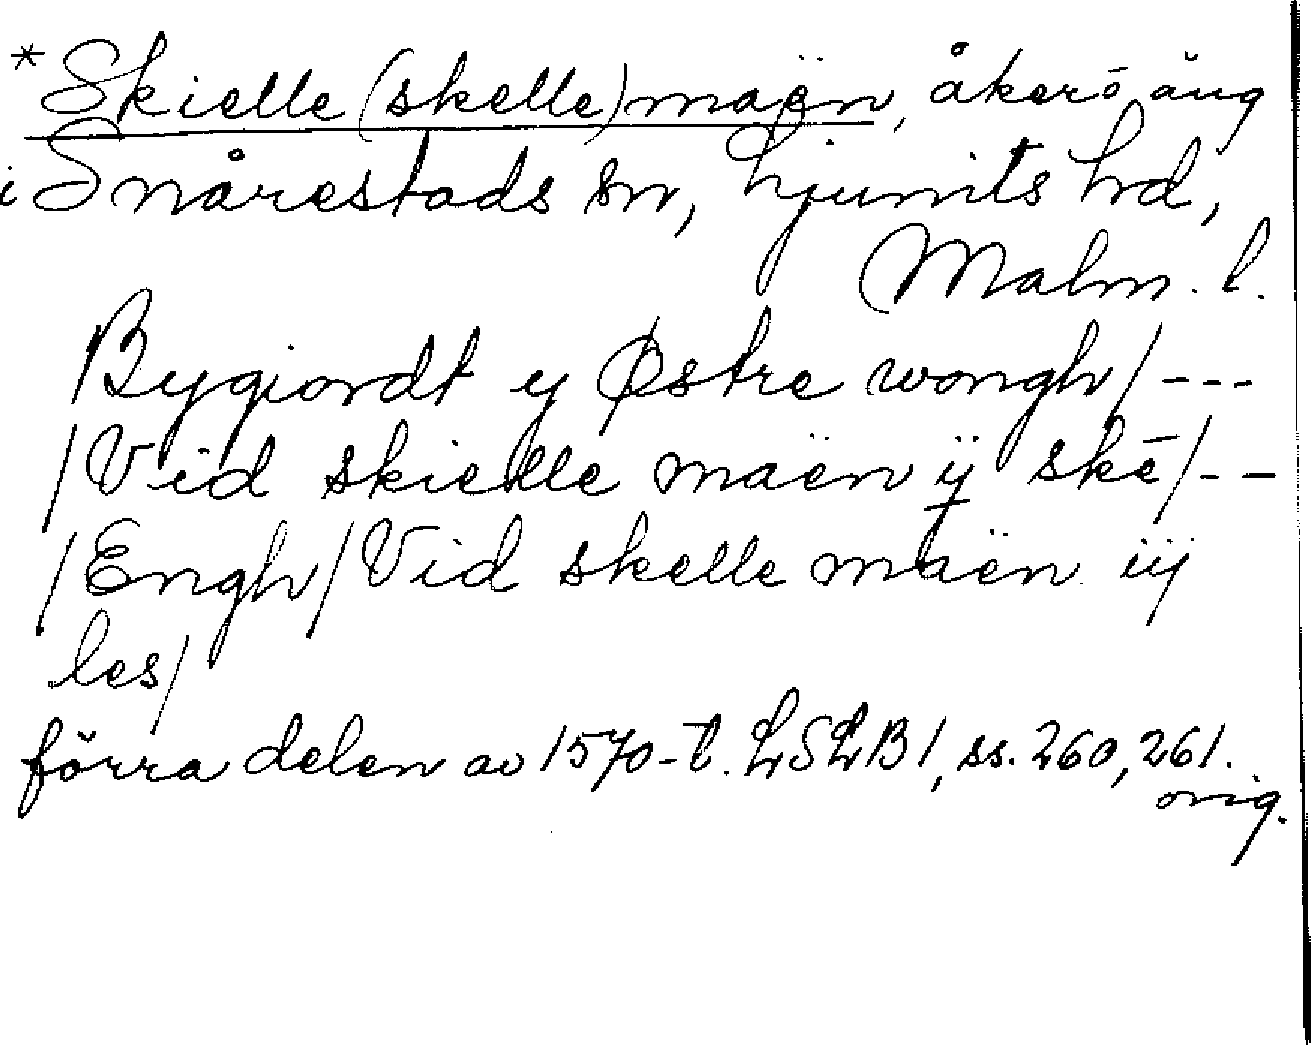 *Skielle (skelle) maën, åker o äng
i Snårestads sn, Ljunits hd,
Malm. l.
Bygiordt y Østre wongh/---
/Vid skielle maën ÿ skē/--
/Engh/Vid skelle maën iij
les/
förra delen av 1570-t. LSLB1, ss. 260, 261.
orig.